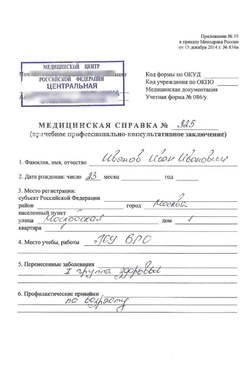 Приложение № 19
к приказу Минздрава России
от 15 декабря 2014 г. № 834н
МЕДИЦИНСКИЙ ЦЕНТР
РОССИЙСКОЙ ФЕДЕРАЦИИ
ЦЕНТРАЛЬНАЯ
Код формы по ОКУД
Код учреждения по ОКПО
Медицинская документация
Учетная форма № 086/у
МЕДИЦИНСКАЯ СПРАВКА № 325
(врачебное профессионально-консультативное заключение)
1. Фамилия, имя, отчество Иванов Иван Иванович
2. Дата рождения: число 23 месяц год
3. Место регистрации:
субъект Российской Федерации
район город Москва
населенный пункт
улица Московская дом 1
квартира
4. Место учебы, работы ГОУ ВПО
5. Перенесенные заболевания
I группа здоровья
6. Профилактические прививки
по возрасту